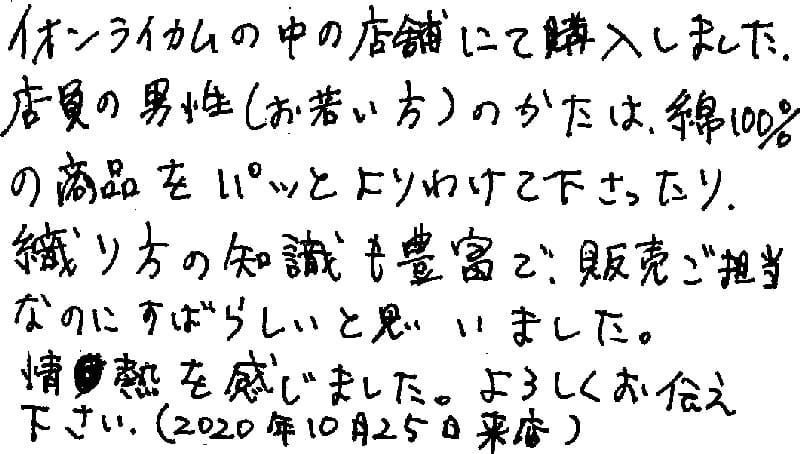 イオンライカムの中の店舗にて購入しました.
店員の男性(お若い方)のかたは、綿100%
の商品をパッとよりわけて下さったり.
織り方の知識も豊富で、販売ご担当
なのにすばらしいと思いました。
情熱を感じました。よろしくお伝え
下さい.(2020年10月25日来店)